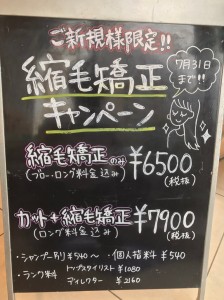 ご新規様限定!!
縮毛矯正
キャンペーン
7月31日
まで!!
縮毛矯正のみ ¥6500
(ブロー・ロング料金込み) (税抜)
カット+縮毛矯正 ¥7900
(ロング料金込み) (税抜)
・シャンプー別¥540〜 ・個人指料¥540
・ランク料 トップスタイリスト¥1080
ディレクター ¥2160